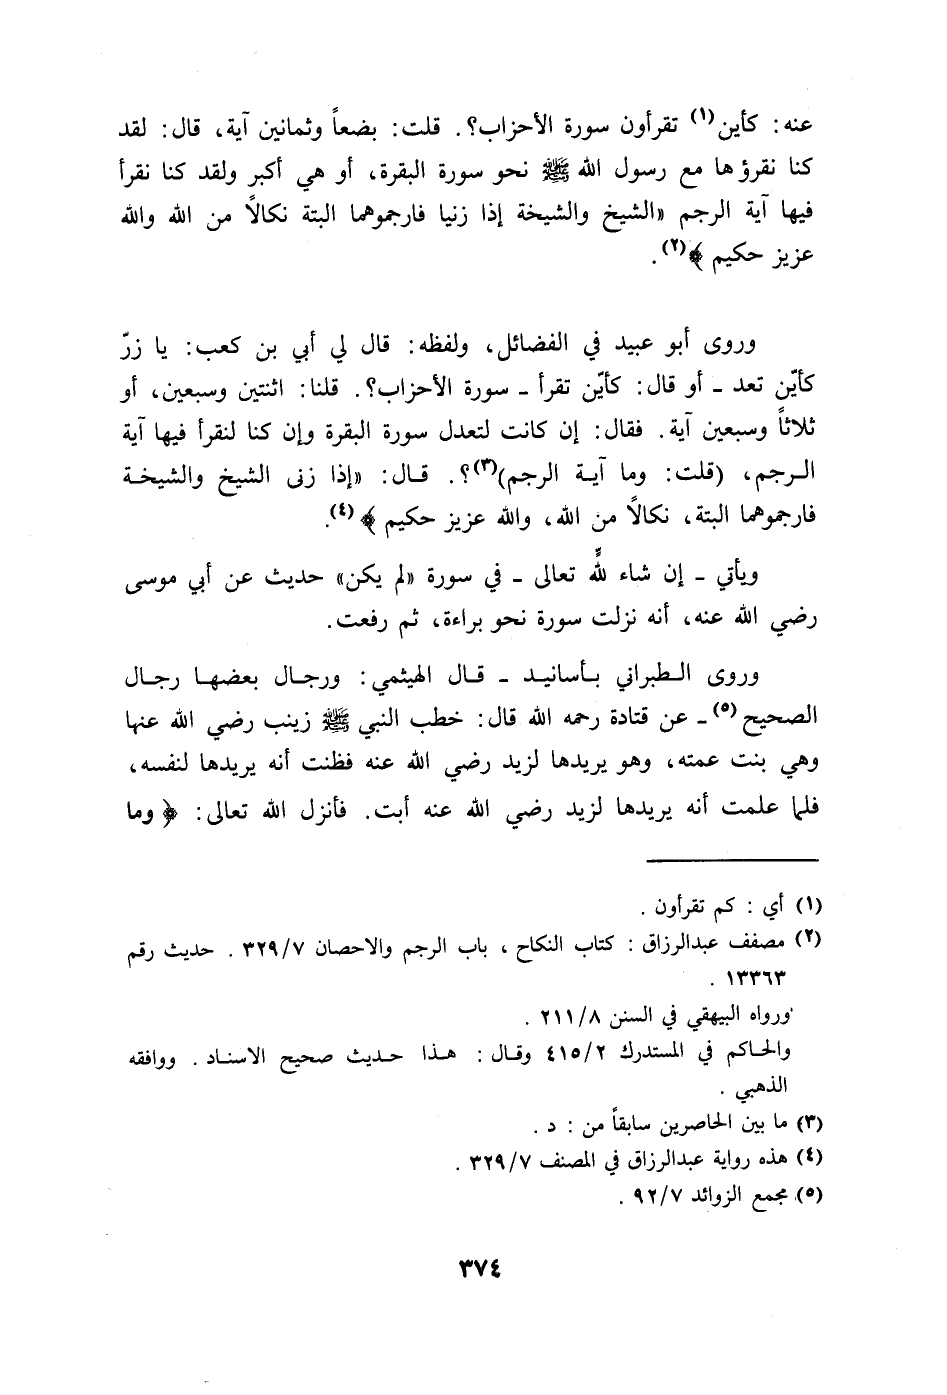 عنه: كأين(١) تقرأون سورة الأحزاب؟. قلت: بضعاً وثمانين آية، قال: لقد
كنا نقرؤها مع رسول الله ﷺ نحو سورة البقرة، أو هي أكبر ولقد كنا نقرأ
فيها آية الرجم «الشيخ والشيخة إذا زنيا فارجموهما البتة نكالاً من الله والله
عزيز حكيم ﴾(٢).
وروى أبو عبيد في الفضائل، ولفظه: قال لي أبي بن كعب: يا زرّ
كأيّن تعد ـ أو قال: كأيّن تقرأ ـ سورة الأحزاب؟. قلنا: اثنتين وسبعين، أو
ثلاثاً وسبعين آية. فقال: إن كانت لتعدل سورة البقرة وإن كنا لنقرأ فيها آية
الرجم، (قلت: وما آية الرجم)(٣)؟. قال: «إذا زنى الشيخ والشيخة
فارجموهما البتة، نكالاً من الله، والله عزيز حكيم ﴾(٤).
ويأتي ـ إن شاء لله تعالى ـ في سورة «لم يكن» حديث عن أبي موسى
رضي الله عنه، أنه نزلت سورة نحو براءة، ثم رفعت.
وروى الطبراني بأسانيد ـ قال الهيثمي: ورجال بعضها رجال
الصحيح(٥) ـ عن قتادة رحمه الله قال: خطب النبي ﷺ زينب رضي الله عنها
وهي بنت عمته، وهو يريدها لزيد رضي الله عنه فظنت أنه يريدها لنفسه،
فلما علمت أنه يريدها لزيد رضي الله عنه أبت. فأنزل الله تعالى: ﴿ وما
(١) أي : كم تقرأون .
(٢) مصفف عبدالرزاق : كتاب النكاح ، باب الرجم والاحصان ٣٢٩/٧ . حديث رقم
١٣٣٦٣ .
ورواه البيهقي في السنن ٢١١/٨ .
والحاكم في المستدرك ٤١٥/٢ وقال : هذا حديث صحيح الاسناد . ووافقه
الذهبي .
(٣) ما بين الحاصرين سابقاً من : د .
(٤) هذه رواية عبدالرزاق في المصنف ٣٢٩/٧ .
(٥) مجمع الزوائد ٩٢/٧ .
٣٧٤